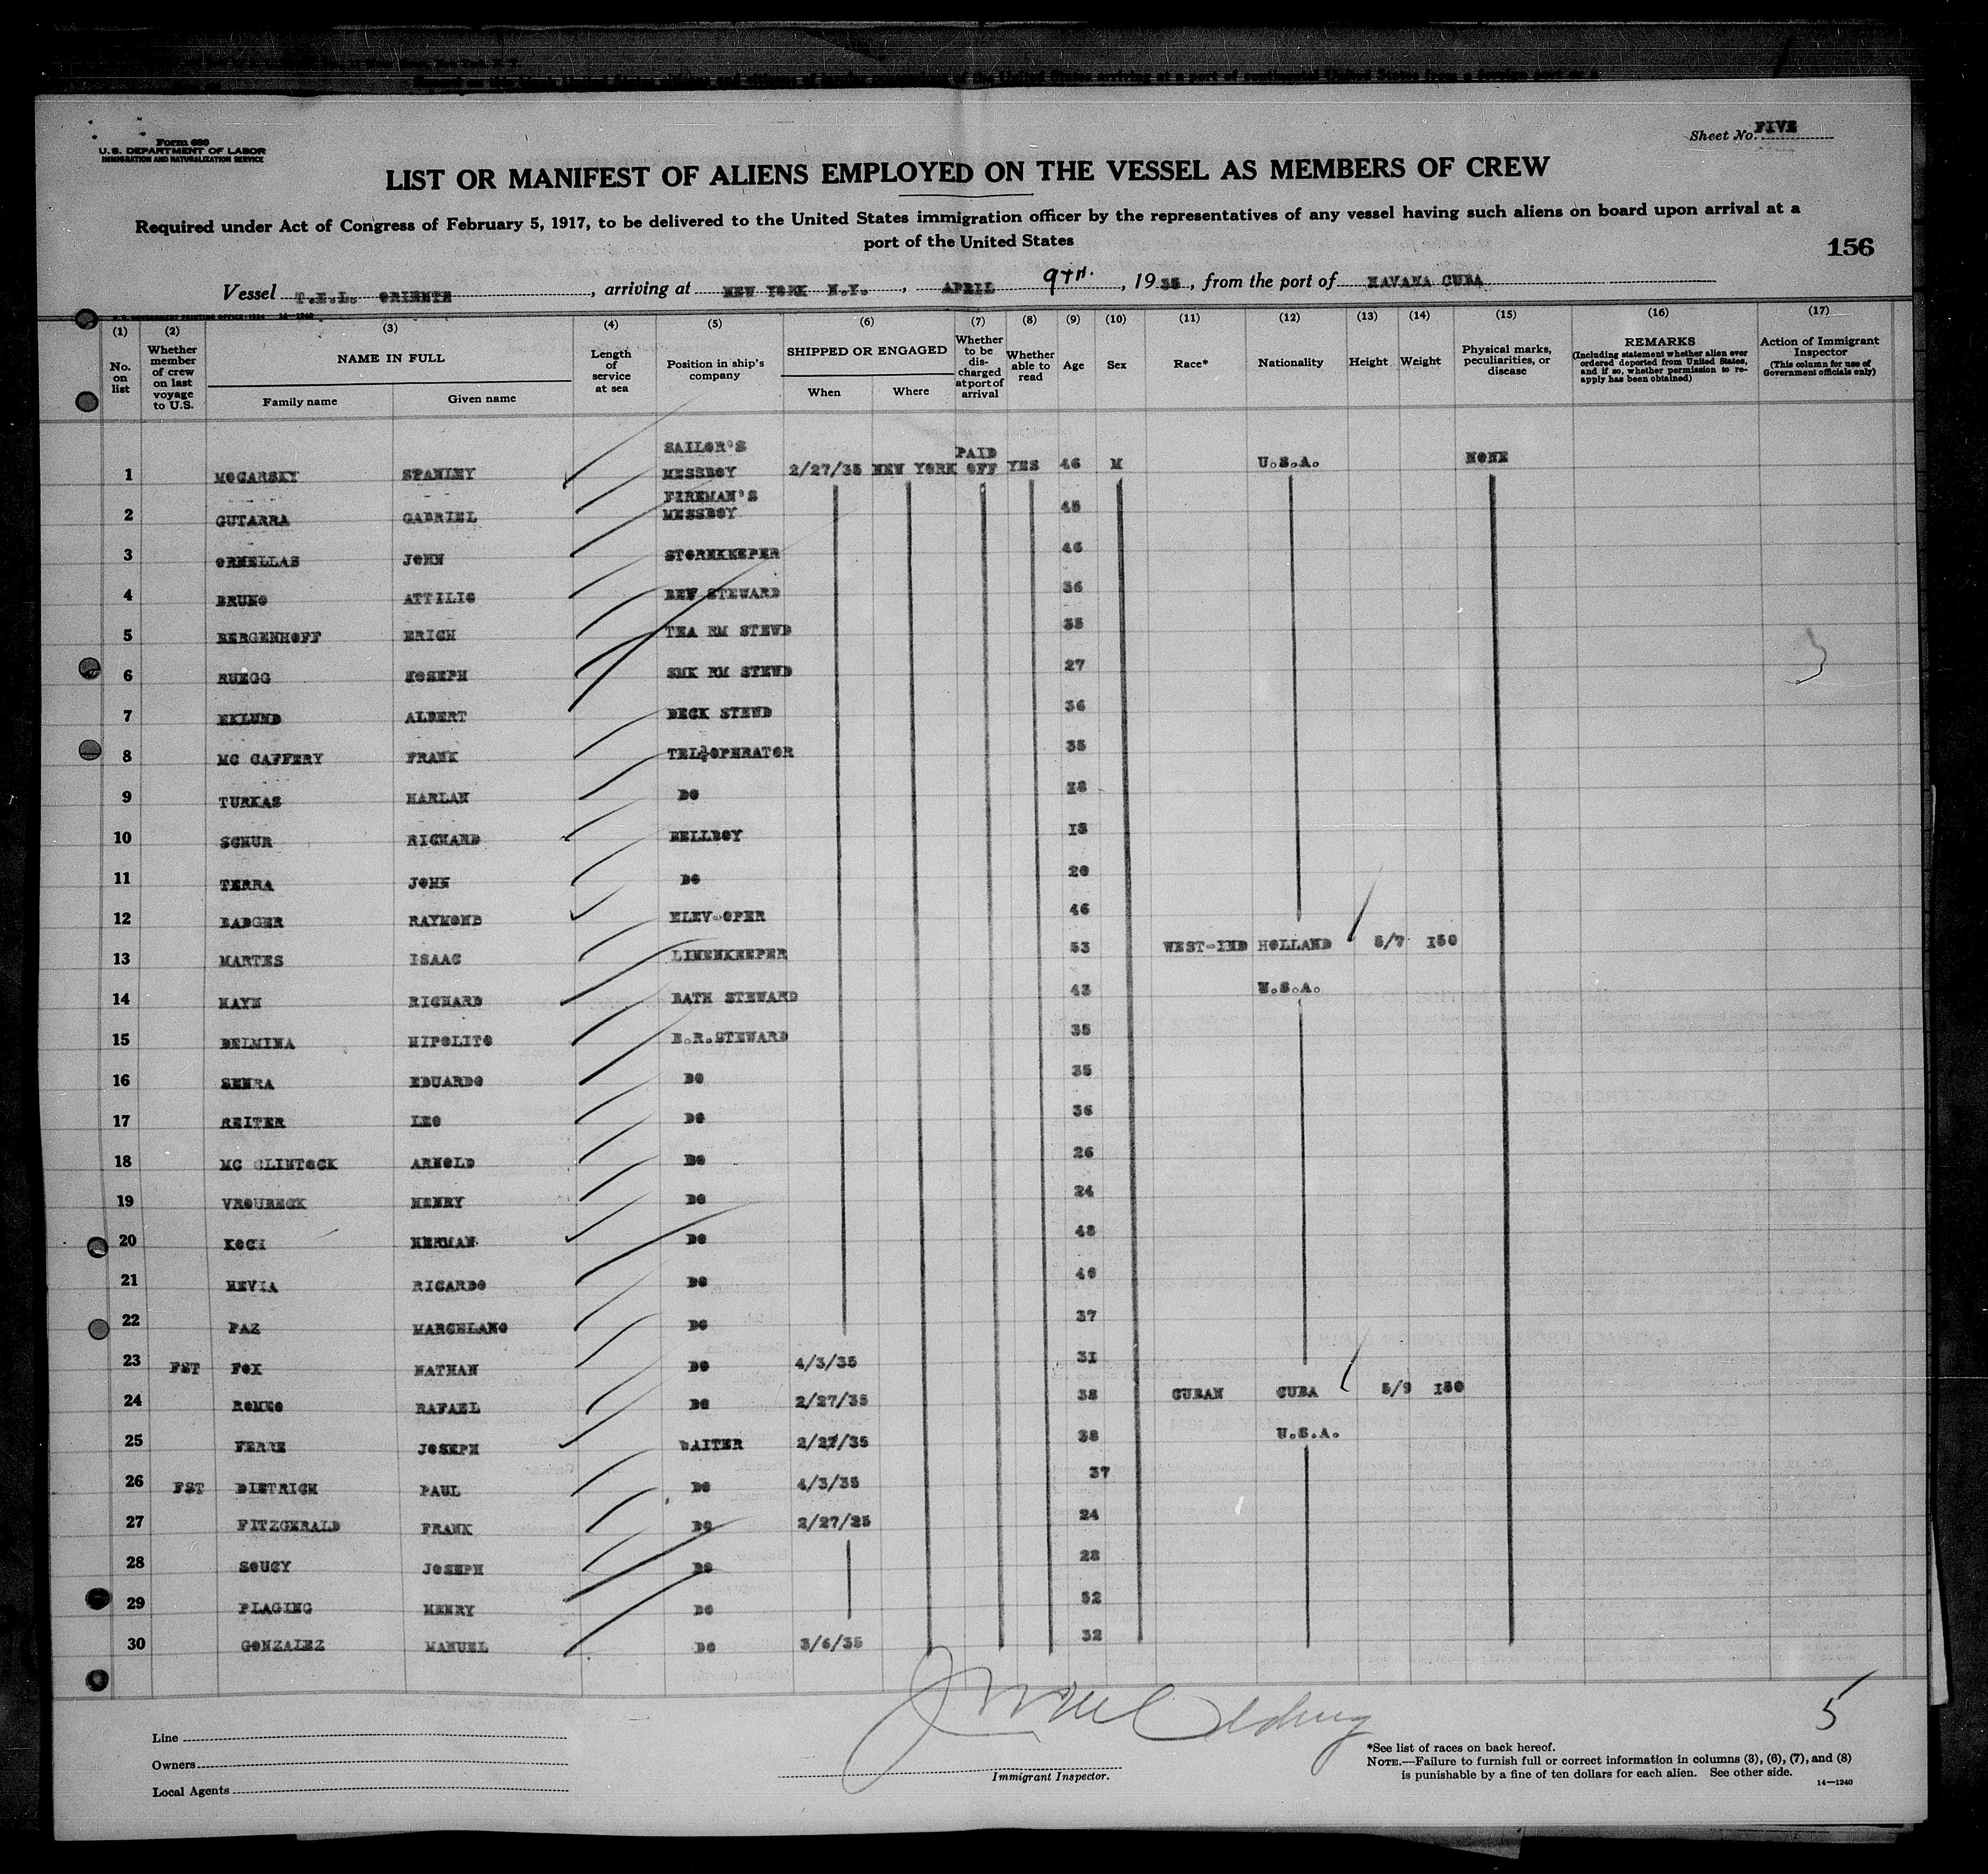 Form 680
U.S. DEPARTMENT OF LABOR
IMMIGRATION AND NATURALIZATION SERVICE
Sheet No. FIVE
LIST OR MANIFEST OF ALIENS EMPLOYED ON THE VESSEL AS MEMBERS OF CREW
Required under Act of Congress of February 5, 1917, to be delivered to the United States immigration officer by the representatives of any vessel having such aliens on board upon arrival at a
port of the United States
156
Vessel T.E.L. ORIENTE, arriving at NEW YORK N.Y., APRIL 9TH., 1935, from the port of HAVANA CUBA
(1) (2) (3) (4) (5) (6) (7) (8) (9) (10) (11) (12) (13) (14) (15) (16) (17)
No. on list
Whether member of crew on last voyage to U.S.
NAME IN FULL
Family name
Given name
Length of service at sea
Position in ship's company
SHIPPED OR ENGAGED
When
Where
Whether to be discharged at port of arrival
Whether able to read
Age
Sex
Race*
Nationality
Height
Weight
Physical marks, peculiarities, or disease
REMARKS
(Including statement whether alien ever ordered deported from United States, and if so, whether permission to reapply has been obtained)
Action of Immigrant Inspector
(This column for use of Government officials only)
1 MOCARSKY STANLEY SAILOR'S MESSBOY 2/27/35 NEW YORK PAID OFF YES 46 M U.S.A. NONE
2 GUTARRA GABRIEL FIREMAN'S MESSBOY 45
3 ORNELLAS JOHN STOREKEEPER 46
4 BRUNO ATTILIO BEV STEWARD 36
5 BERGENHOFF ERICH TEA RM STEWD 35
6 RUEGG JOSEPH SMK RM STEWD 27
7 EKLUND ALBERT DECK STEWD 36
8 MC CAFFERY FRANK TEL OPERATOR 35
9 TURKAS HARLAN DO 18
10 SCHUR RICHARD BELLBOY 18
11 TERRA JOHN DO 20
12 BADGER RAYMOND ELEV-OPER 46
13 MARTES ISAAC LINENKEEPER 53 WEST-IND HOLLAND 5/7 150
14 HAYN RICHARD BATH STEWARD 43 U.S.A.
15 BELMINA HIPOLITO B.R.STEWARD 35
16 SENRA EDUARDO DO 35
17 REITER LEO DO 36
18 MC CLINTOCK ARNOLD DO 26
19 VROUBECK HENRY DO 24
20 KOCH HERMAN DO 48
21 HEVIA RICARDO DO 46
22 PAZ MARCELANO DO 37
23 FST FOX NATHAN DO 4/3/35 31
24 ROMEO RAFAEL DO 2/27/35 38 CUBAN CUBA 5/9 180
25 FERRE JOSEPH WAITER 2/27/35 38 U.S.A.
26 FST DIETRICH PAUL DO 4/3/35 37
27 FITZGERALD FRANK DO 2/27/35 24
28 SOUCY JOSEPH DO 28
29 PLAGING HENRY DO 52
30 GONZALEZ MANUEL DO 3/6/35 32
5
Line
Owners
Local Agents
Immigrant Inspector.
*See list of races on back hereof.
NOTE.—Failure to furnish full or correct information in columns (3), (6), (7), and (8)
is punishable by a fine of ten dollars for each alien. See other side.
14—1240